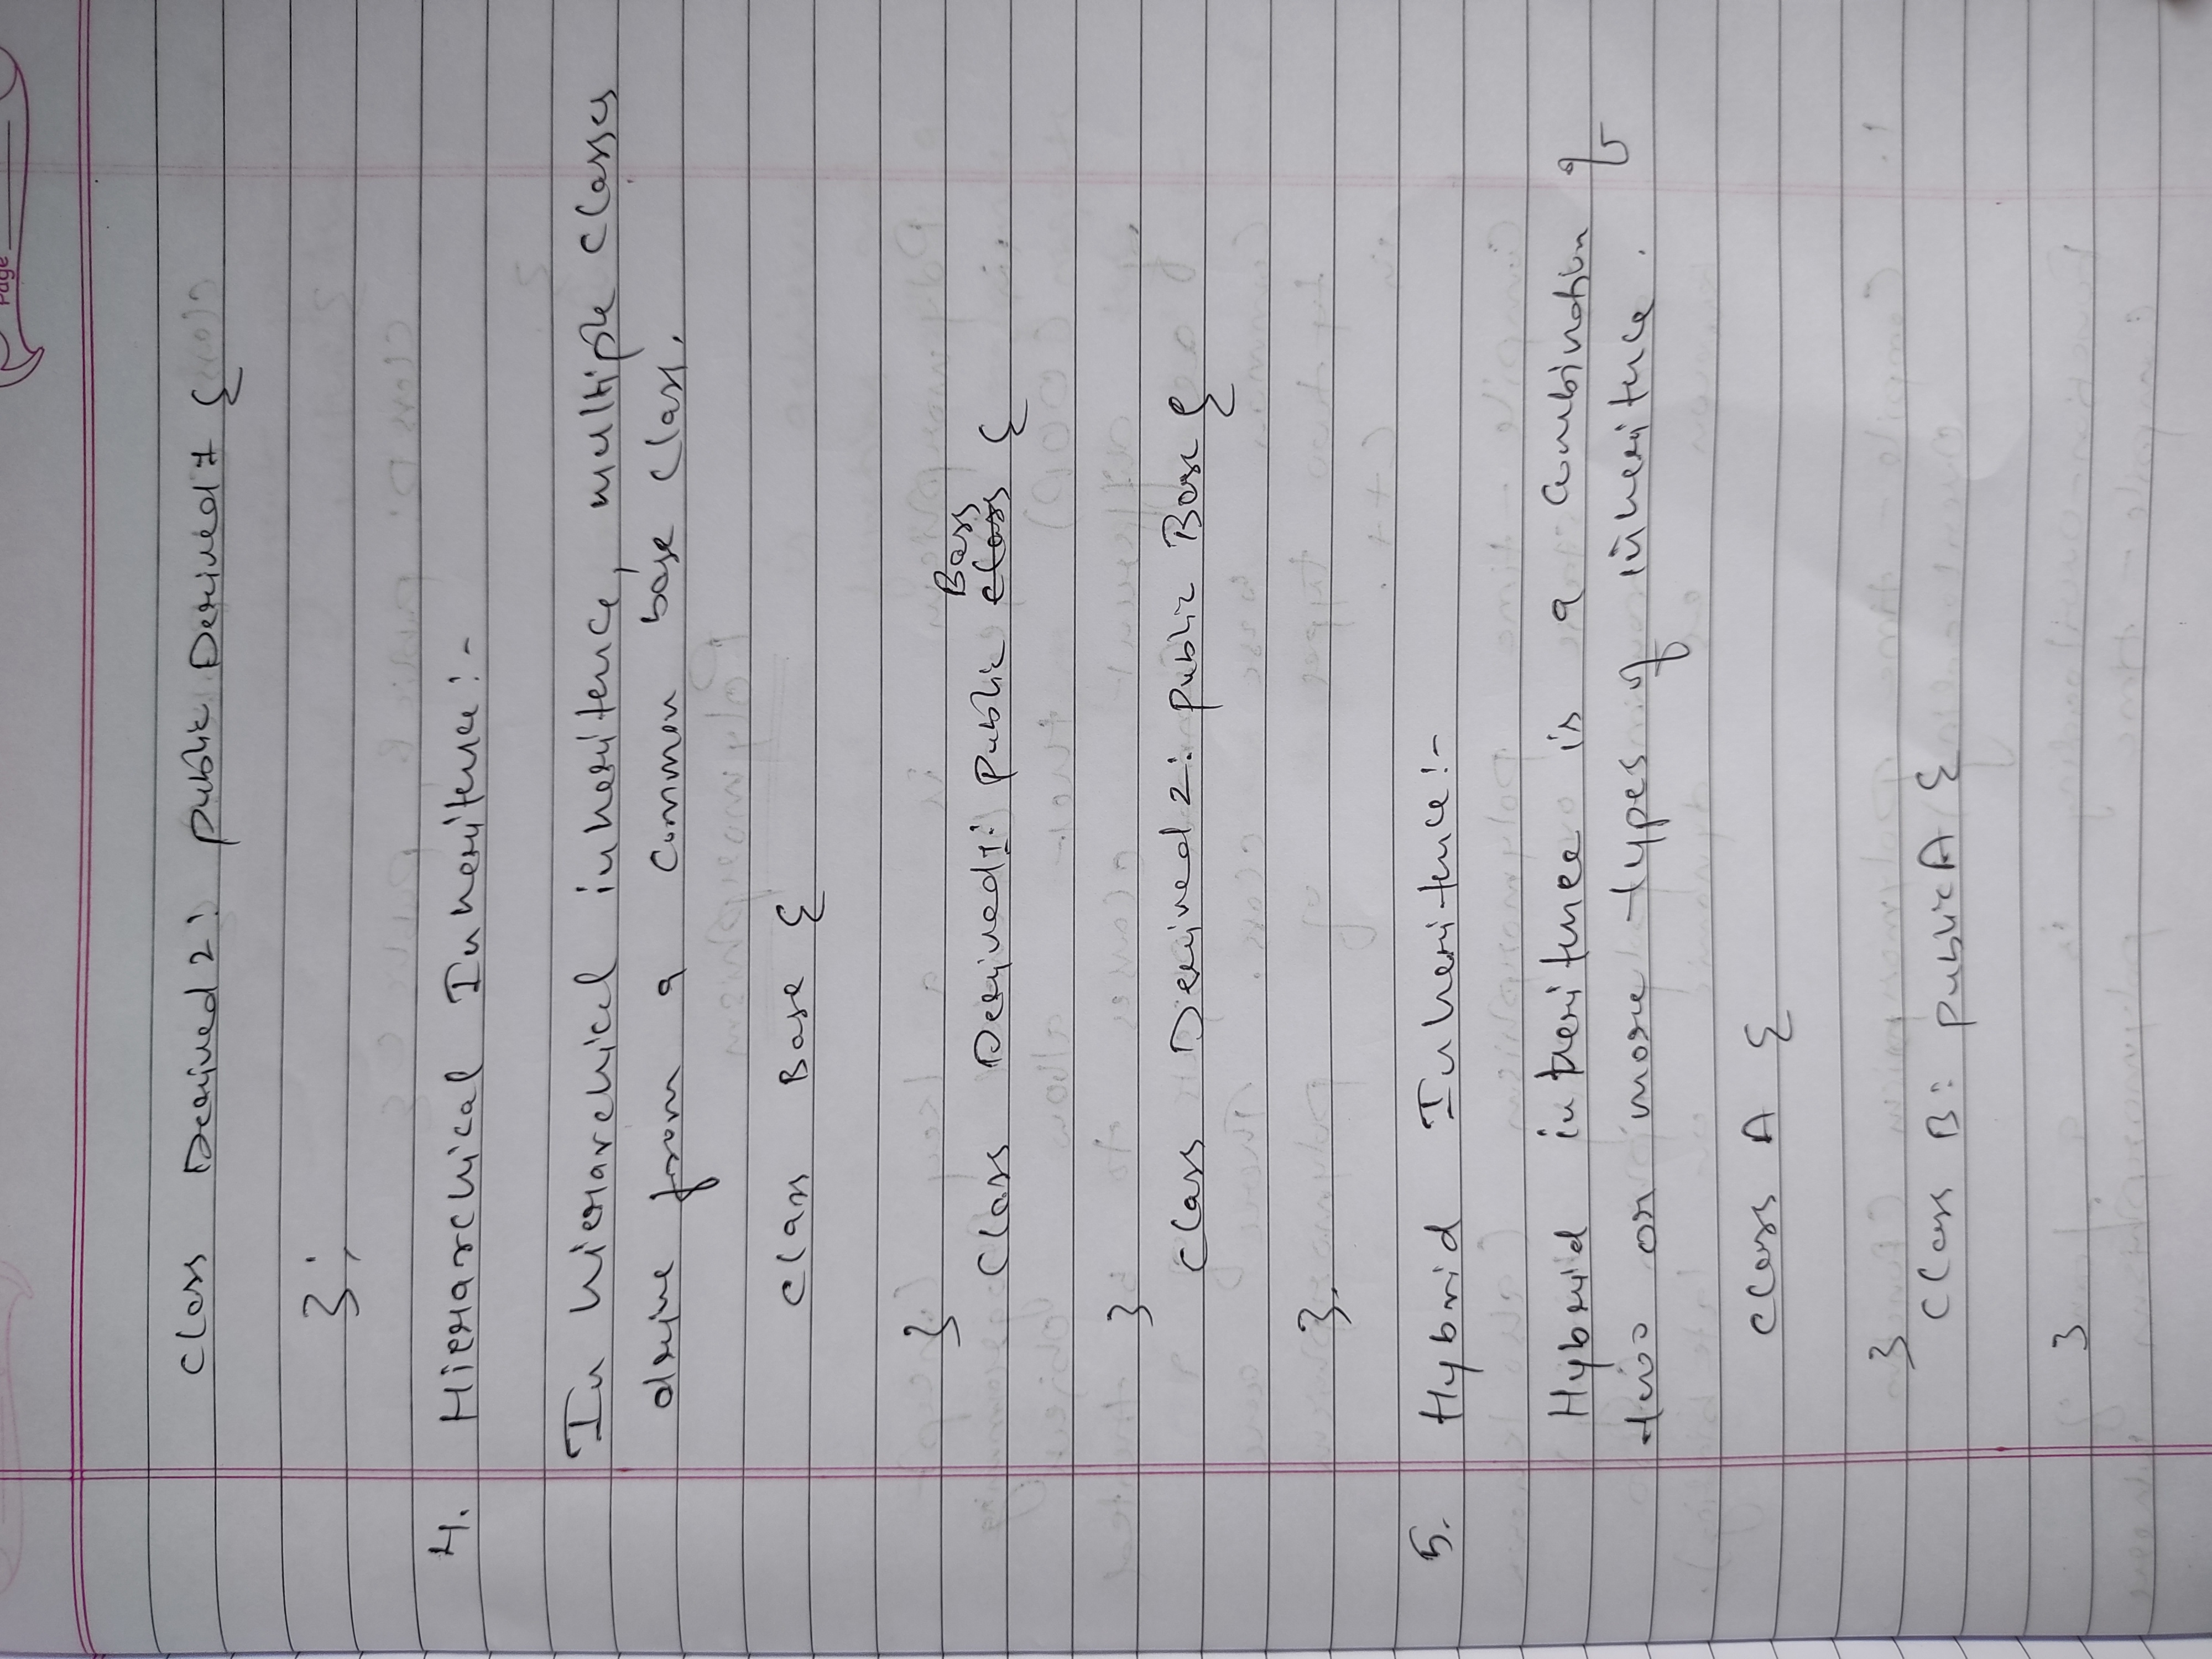 Page
Class Derived 2: public Derived 1 {
};
4. Hierarchical Inheritence:-
In hierarchical inheritence, multiple classes
drive from a common base class.
class Base {
}
Class Derived1: public Bass class {
}
class Derived 2: public Base {
}.
5. Hybrid Inheritence:-
Hybrid inheritence is a combination of
two or more types of inheritence.
class A {
}
Class B: public A {
}